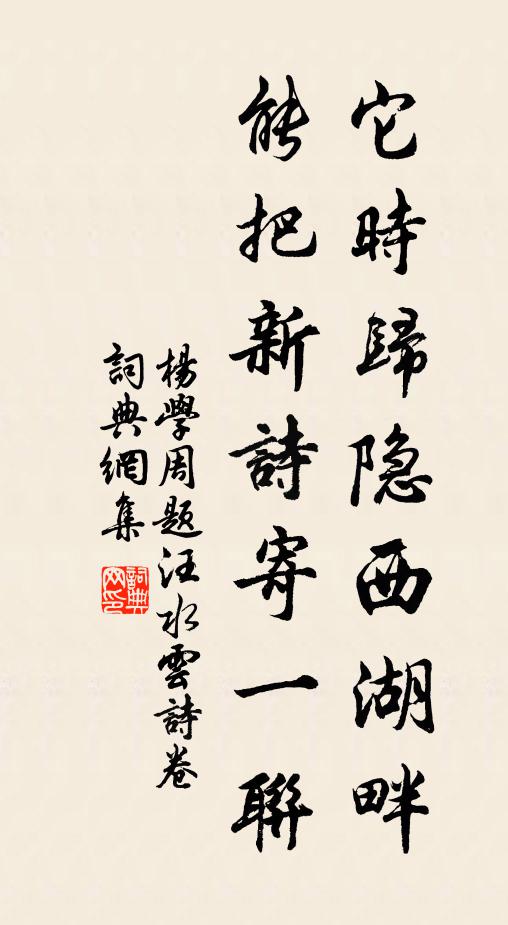 它時歸隐西湖畔
能把新詩寄一聯
楊學周题汪水雲詩卷
詞典網集
詞典網印